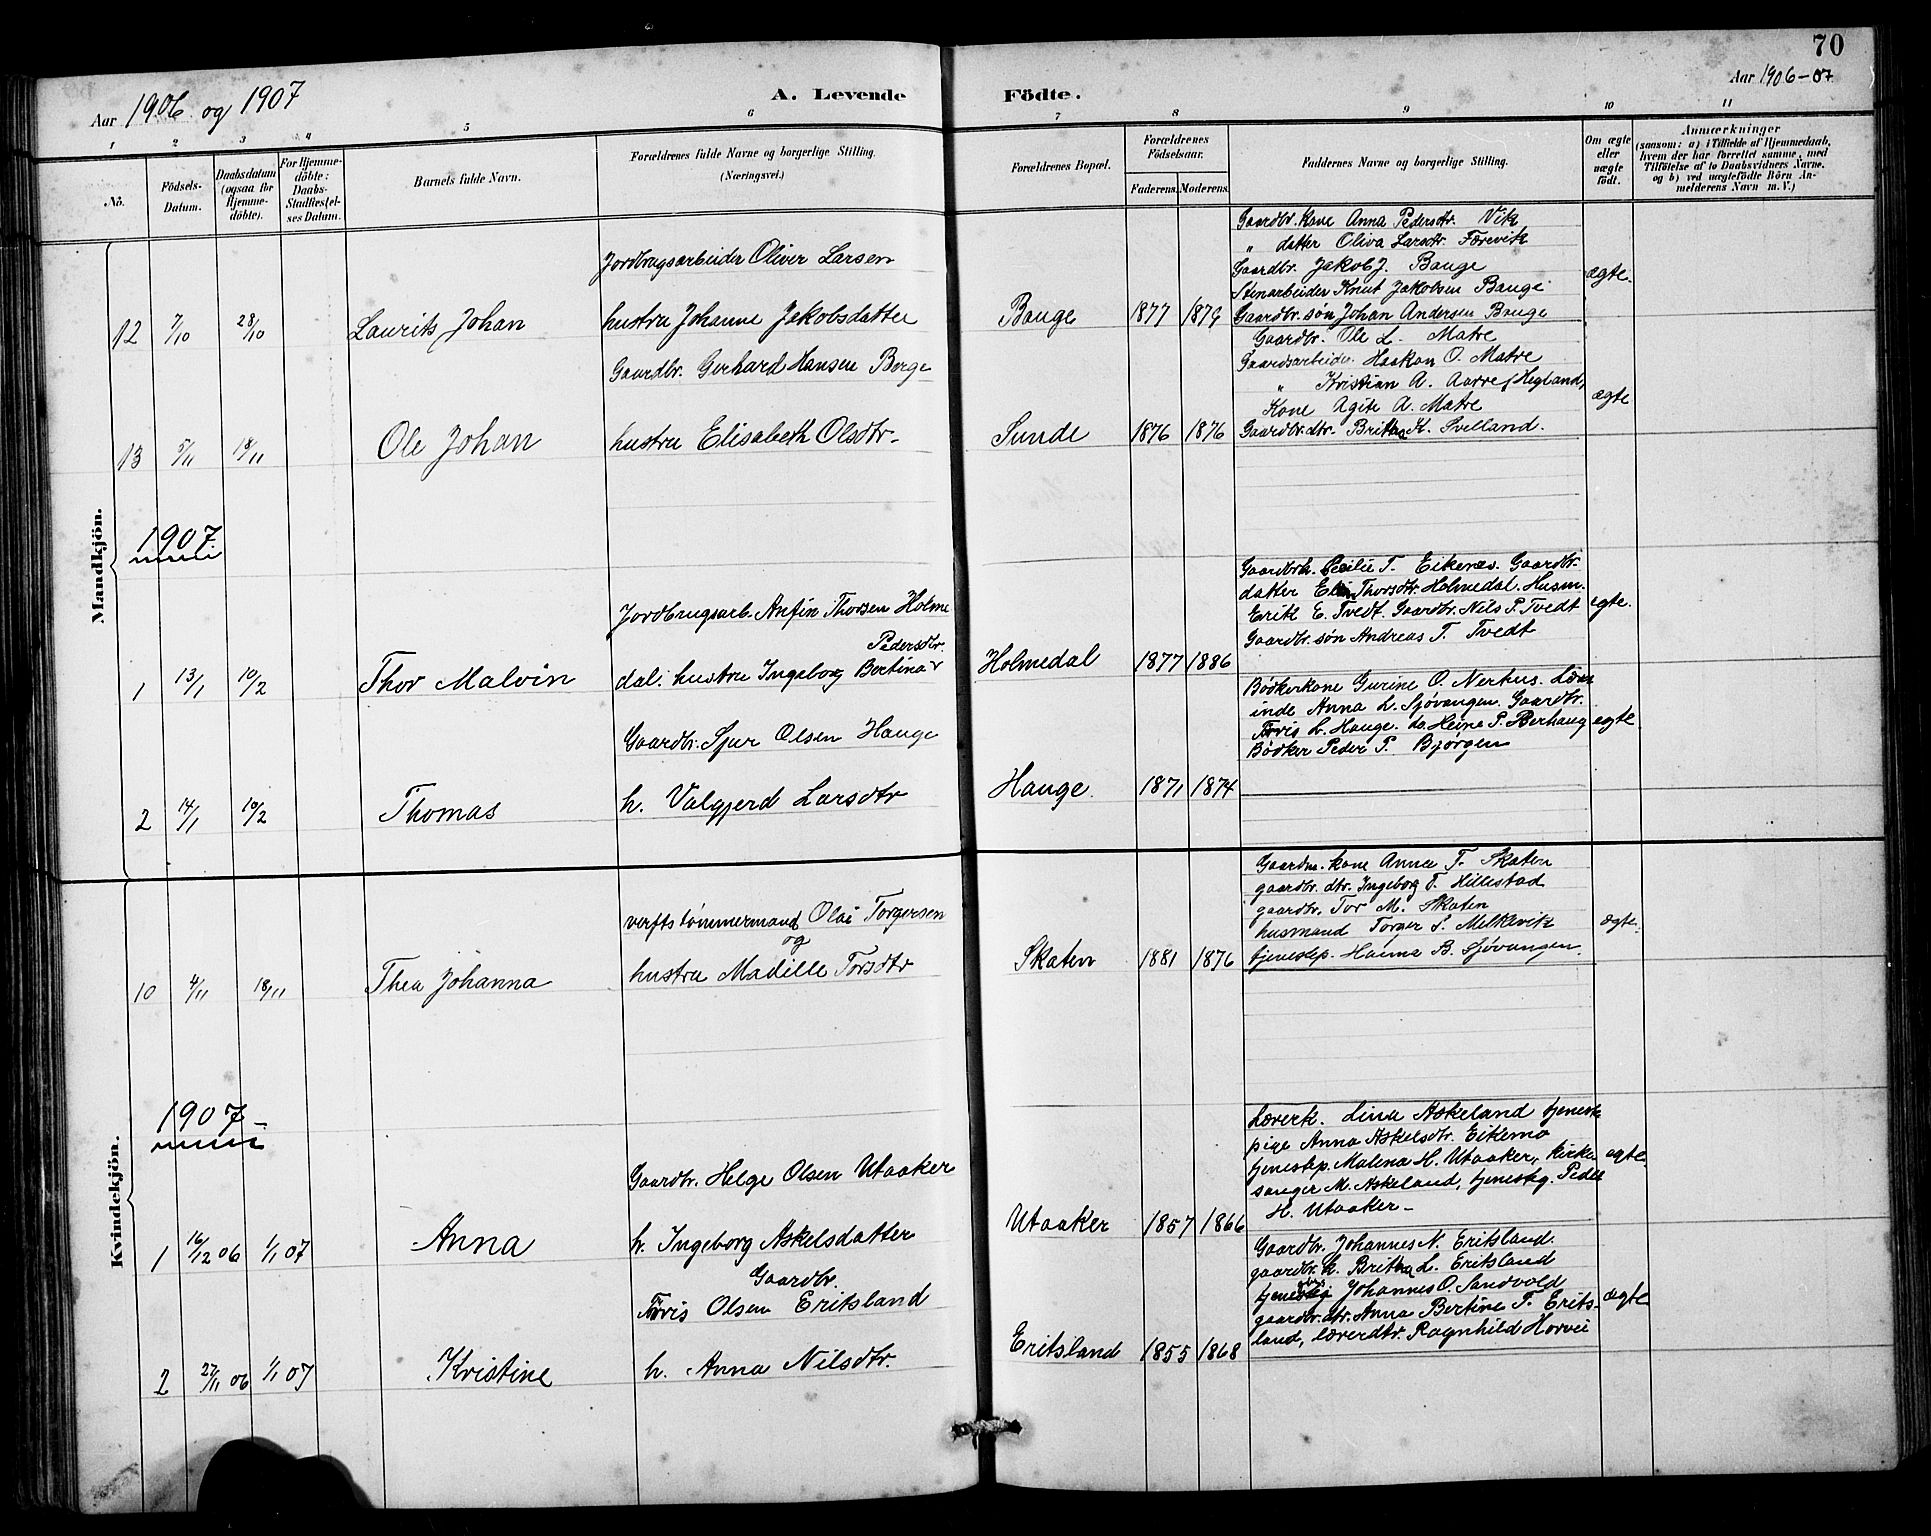 70
Aar 1906 og 1907
A. Levende Födte.
Aar 1906-07
1 2 3 4 5 6 7 8 9 10 11
No.
Födsels-Datum.
Daabsdatum (ogsaa for Hjemme-döbte).
For Hjemme-döbte: Daabs-Stadfæstel-ses Datum.
Barnets fulde Navn.
Forældrenes fulde Navne og borgerlige Stilling. (Næringsvei.)
Forældrenes Bopæl.
Forældrenes Födselsaar.
Faderens. Moderens.
Faddernes Navne og borgerlige Stilling.
Om ægte eller uægte födt.
Anmærkninger
(saasom: a) i Tilfælde af Hjemmedaab, hvem der har forrettet samme, med Tilföielse af to Daabsvidners Navne. og b) ved uægtefödte Börn An-melderens Navn m. V.)
Mandkjön.
12 7/10 28/10 Laurits Johan
Jordbrugsarbeider Oliver Larsen
hustru Johanne Jakobsdatter
Bauge 1877 1879
Gaardbr. kone Anna Pedersdtr. Vik
" datter Oliva Larsdtr. Færevik
Gaardbr. Jakob J. Bauge
Stenarbeider Knut Jakobsen Bauge
Gaardbr. søn Johan Andersen Bauge
ægte.
13 5/11 18/11 Ole Johan
Gaardbr. Gerhard Hansen Berge
hustru Elisabeth Olsdtr.
Sunde 1876 1876
Gaardbr. Ole L. Matre
Gaardsarbeider Haakon O. Matre
" Kristian A. Aarre (Hegland)
Kone Agite A. Matre
Gaardbr. dtr. Britha K. Svelland.
ægte
1907
1 13/1 10/2 Thor Malvin
Jordbrugsarb. Anfin Thorsen Holme
Pedersdtr.
dal. hustru Ingeborg Bertina
Holmedal 1877 1886
Gaardbrk. Cecilie T. Eikenes. Gaardbr.
datter Elin Thorsdtr. Holmedal. Husm.
Erik E. Tvedt. Gaardbr. Nils P. Tvedt
Gaardbr. søn Andreas T. Tvedt
egte.
2 14/1 10/2 Thomas
Gaardbr. Sjur Olsen Hauge
h. Valgjerd Larsdtr
Hauge. 1871 1874
Bødkerkone Gurine O. Nerhus. Lærer
inde Anna L. Sjøvangen. Gaardbr.
Tørris L. Hauge. do. Heine P. Berhaug
Bødker Peder P. Bjørgen
egte
Kvindekjön.
10 4/11 18/11 Thea Johanna
verftstømmermand Olai Torgersen
og
hustru Madille Torsdtr
Skaten 1881 1876
Gaardm. kone Anna T. Skaten
gaardbr. dtr. Ingeborg T. Hillestad
gaardbr. Tor M. Skaten
husmand Torger S. Melkevik
tjenestep. Hanna B. Sjøvangen.
ægte.
1907
1 16/12 06 1/1 07 Anna
Gaardbr. Helge Olsen Utaaker
h. Ingeborg Askelsdatter
Utaaker 1857 1866
Lærerk. Lina Askeland tjeneste
pige Anna Askelsdtr. Eikemo
tjenestep. Malena H. Utaaker, kirke
sanger M. Askeland, tjenesteg. Peder
H. Utaaker
egte
2 27/11 06 1/1 07 Kristine
Gaardbr.
Tørris Olsen Eritsland
h. Anna Nilsdtr.
Eritsland 1855 1868
Gaardbr. Johannes N. Eritsland
gaardbr. k. Britha L. Eritsland
Johannes O. Sandvold
gaardbr. dtr. Anna Bertine T. Erits-
land, lærerdtr. Ragnhild Horvei
ægte